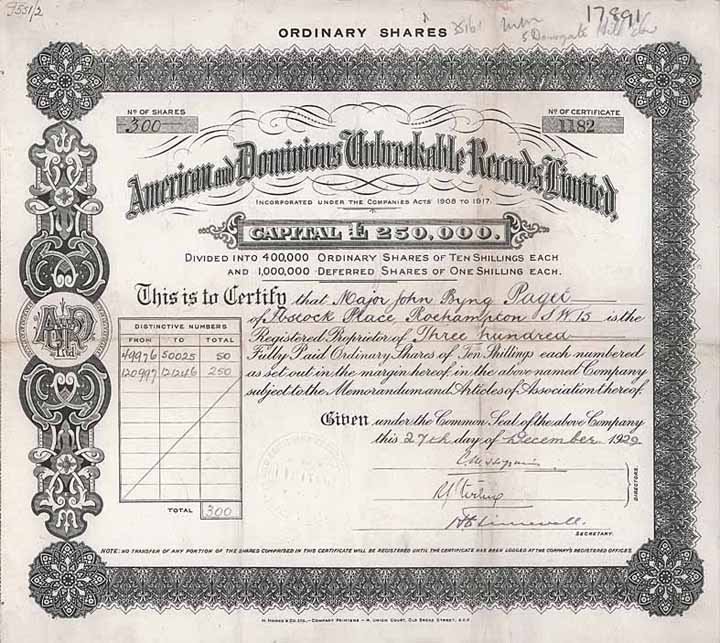 7551/2
ORDINARY SHARES
35161
17,891
5 Dowgate Hill
No OF SHARES
300
No OF CERTIFICATE
1182
American and Dominions Unbreakable Records Limited,
INCORPORATED UNDER THE COMPANIES ACTS 1908 TO 1917.
CAPITAL £ 250,000.
DIVIDED INTO 400,000 ORDINARY SHARES OF TEN SHILLINGS EACH
AND 1,000,000 DEFERRED SHARES OF ONE SHILLING EACH.
This is to Certify that Major John Byng Paget
of Ibstock Place, Roehampton S.W.15 is the
Registered Proprietor of Three hundred
Fully Paid Ordinary Shares of Ten Shillings each numbered
as set out in the margin hereof, in the above named Company
subject to the Memorandum and Articles of Association thereof.
DISTINCTIVE NUMBERS
FROM TO TOTAL
49976 50025 50
120997 121246 250
TOTAL 300
Ltd
Given under the Common Seal of the above Company
this 27th day of December 1929
DIRECTORS.
SECRETARY.
NOTE: NO TRANSFER OF ANY PORTION OF THE SHARES COMPRISED IN THIS CERTIFICATE WILL BE REGISTERED UNTIL THE CERTIFICATE HAS BEEN LODGED AT THE COMPANY'S REGISTERED OFFICES.
COMPANY PRINTERS — 4, UNION COURT, OLD BROAD STREET, E.C.2.